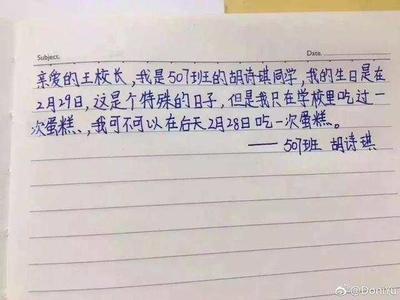 Subject: Date
亲爱的王校长,我是507班的胡诗琪同学,我的生日是在
2月29日,这是个特殊的日子,但是我只在学校里吃过一
次蛋糕、,我可不可以在后天2月28日吃一次蛋糕。
—— 507班 胡诗琪
@Doniru